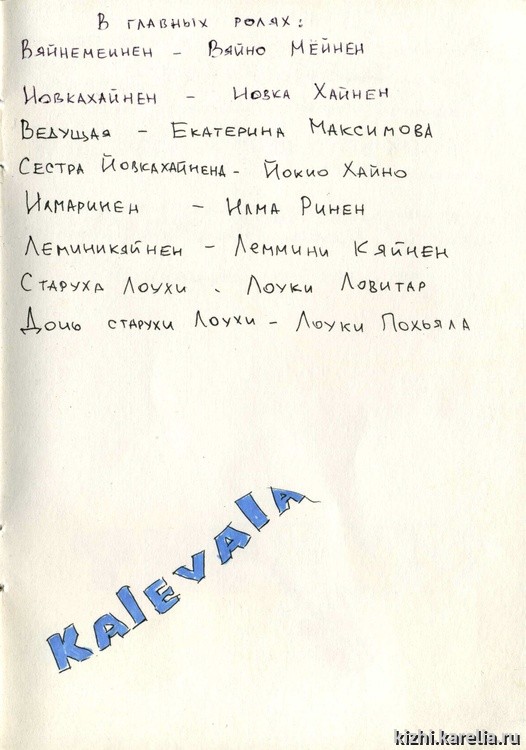 В главных ролях:
Вяйнемеинен - Вяйно Мёйнен
Йовкахайнен - Йовка Хайнен
Ведущая - Екатерина Максимова
Сестра Йовкахайнена - Йокио Хайно
Илмаринен - Илма Ринен
Леминикяйнен - Леммини Кяйнен
Старуха Лоухи. Лоуки Ловитар
Дочь старухи Лоухи - Лоуки Похьяла
Kalevala
kizhi.karelia.ru